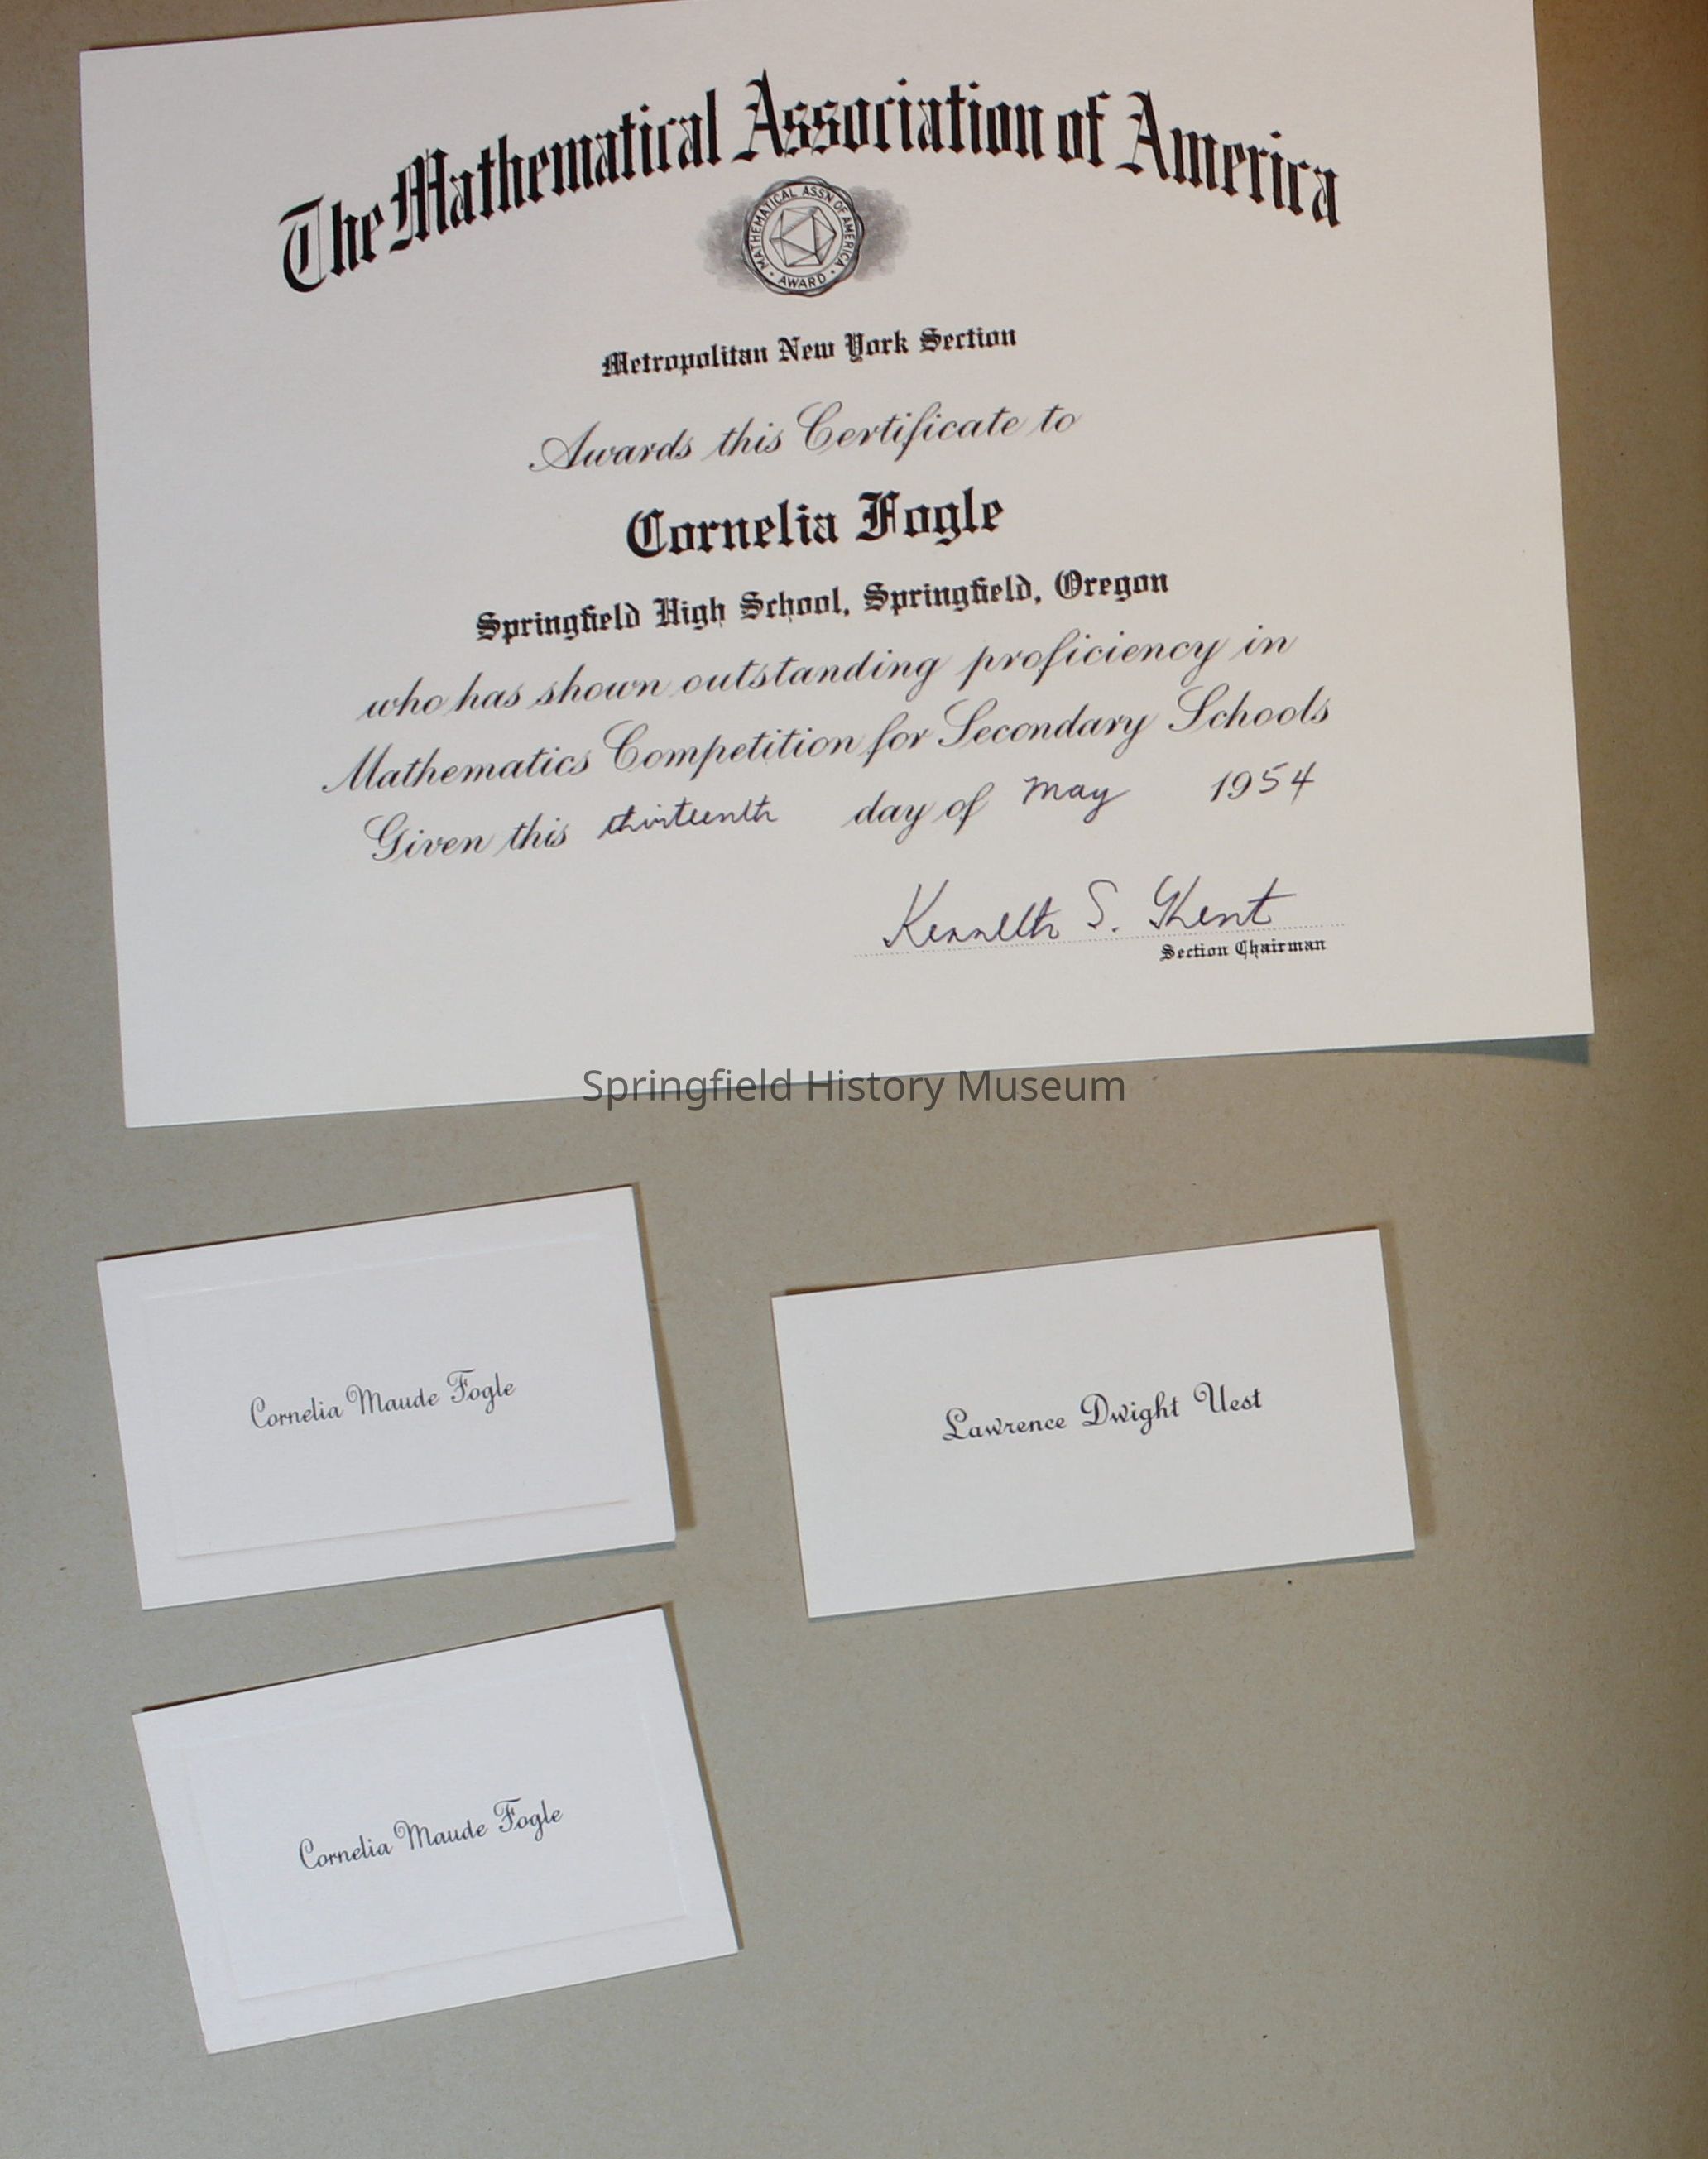 The Mathematical Association of America
MATHEMATICAL ASSN OF AMERICA
AWARD
Metropolitan New York Section
Awards this Certificate to
Cornelia Fogle
Springfield High School, Springfield, Oregon
who has shown outstanding proficiency in
Mathematics Competition for Secondary Schools
Given this thirteenth day of May 1954
Kenneth S.
Section Chairman
Springfield History Museum
Cornelia Maude Fogle
Lawrence Dwight Uest
Cornelia Maude Fogle